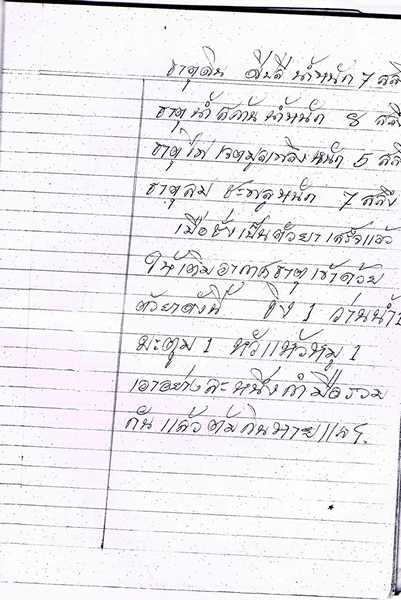 ธาตุดิน ดีปลี น้ำหนัก 7 สลึ
ธาตุน้ำ สค้าน น้ำหนัก 8 สลึ
ธาตุไฟ เจตมูลเพลิง หนัก 5 สลึ
ธาตุลม ชะพลู หนัก 7 สลึง
เมื่อชั่งเป็นตัวยาเสร็จแล้ว
ให้เติมอากาศธาตุเข้าด้วย
ตัวยาดังนี้ ขิง 1 ว่านน้ำ 1
มะตูม 1 หัวแห้วหมู 1
เอาอย่างละหนึ่งกำมือรวม
กันแล้วต้มกินหาย